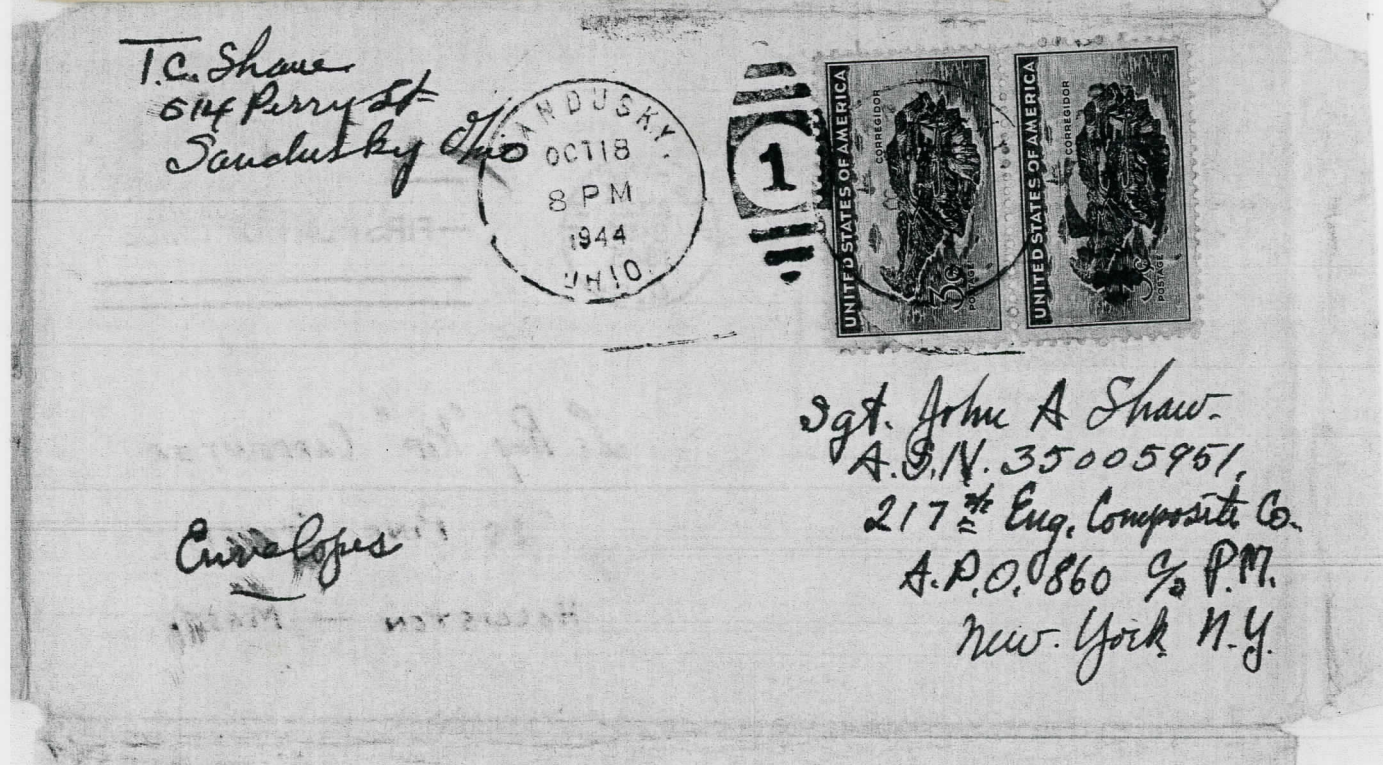 T.C. Shawe
614 Perry St
Sandusky Ohio
SANDUSKY.
OCT 18
8 PM
1944
OHIO
1
UNITED STATES OF AMERICA
CORREGIDOR
3¢
POSTAGE
UNITED STATES OF AMERICA
CORREGIDOR
3¢
POSTAGE
Sgt. John A Shaw.
A.S.N. 35005951.
217th Eng. Composite Co.
A.P.O. 860 c/o P.M.
New York N.Y.
Envelopes
HOLLISTON — MASS